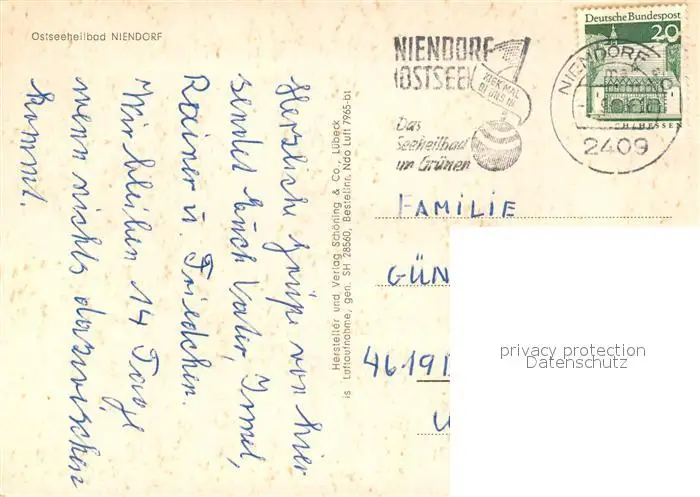 Ostseeheilbad NIENDORF
Herzliche Grüße von hier
sendet Euch Vater, Irmel,
Rainer u. Friedchen.
Wir bleiben 14 Tage
wenn nichts dazwischen
kommt.
Hersteller und Verlag Schöning & Co., Lübeck
is Luftaufnahme, gen. SH 28560, Bestellnr. Ndo Luft 7965-bt
NIENDORF
(OSTSEE)
KIEK MAL
BI UNS IN
Das
Seeheilbad
im Grünen
Deutsche Bundespost
20
HESSEN
NIENDORF
2409
FAMILIE
GÜN
4619
privacy protection
Datenschutz